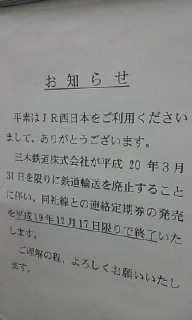 お知らせ
平素はJR西日本をご利用ください
まして、ありがとうございます。
三木鉄道株式会社が平成20年3月
31日を限りに鉄道輸送を廃止すること
に伴い、同社線との連絡定期券の発売
を平成19年12月17日限りで終了いた
します。
ご理解の程、よろしくお願いいたし
ます。